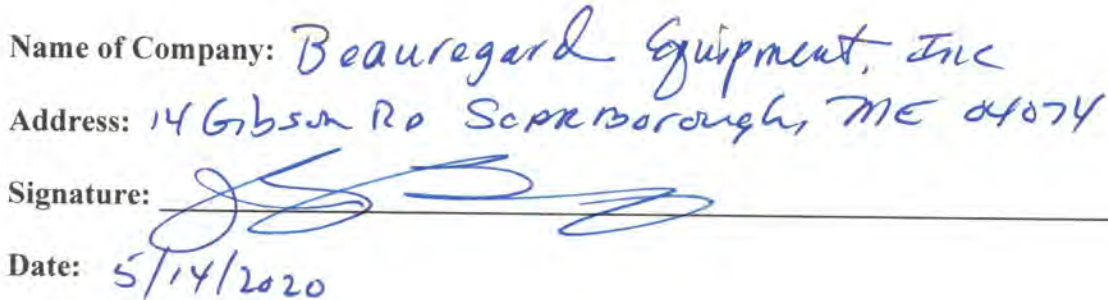 Name of Company: Beauregard Equipment, Inc
Address: 14 Gibson RD Scarborough, ME 04074
Signature:
Date: 5/14/2020